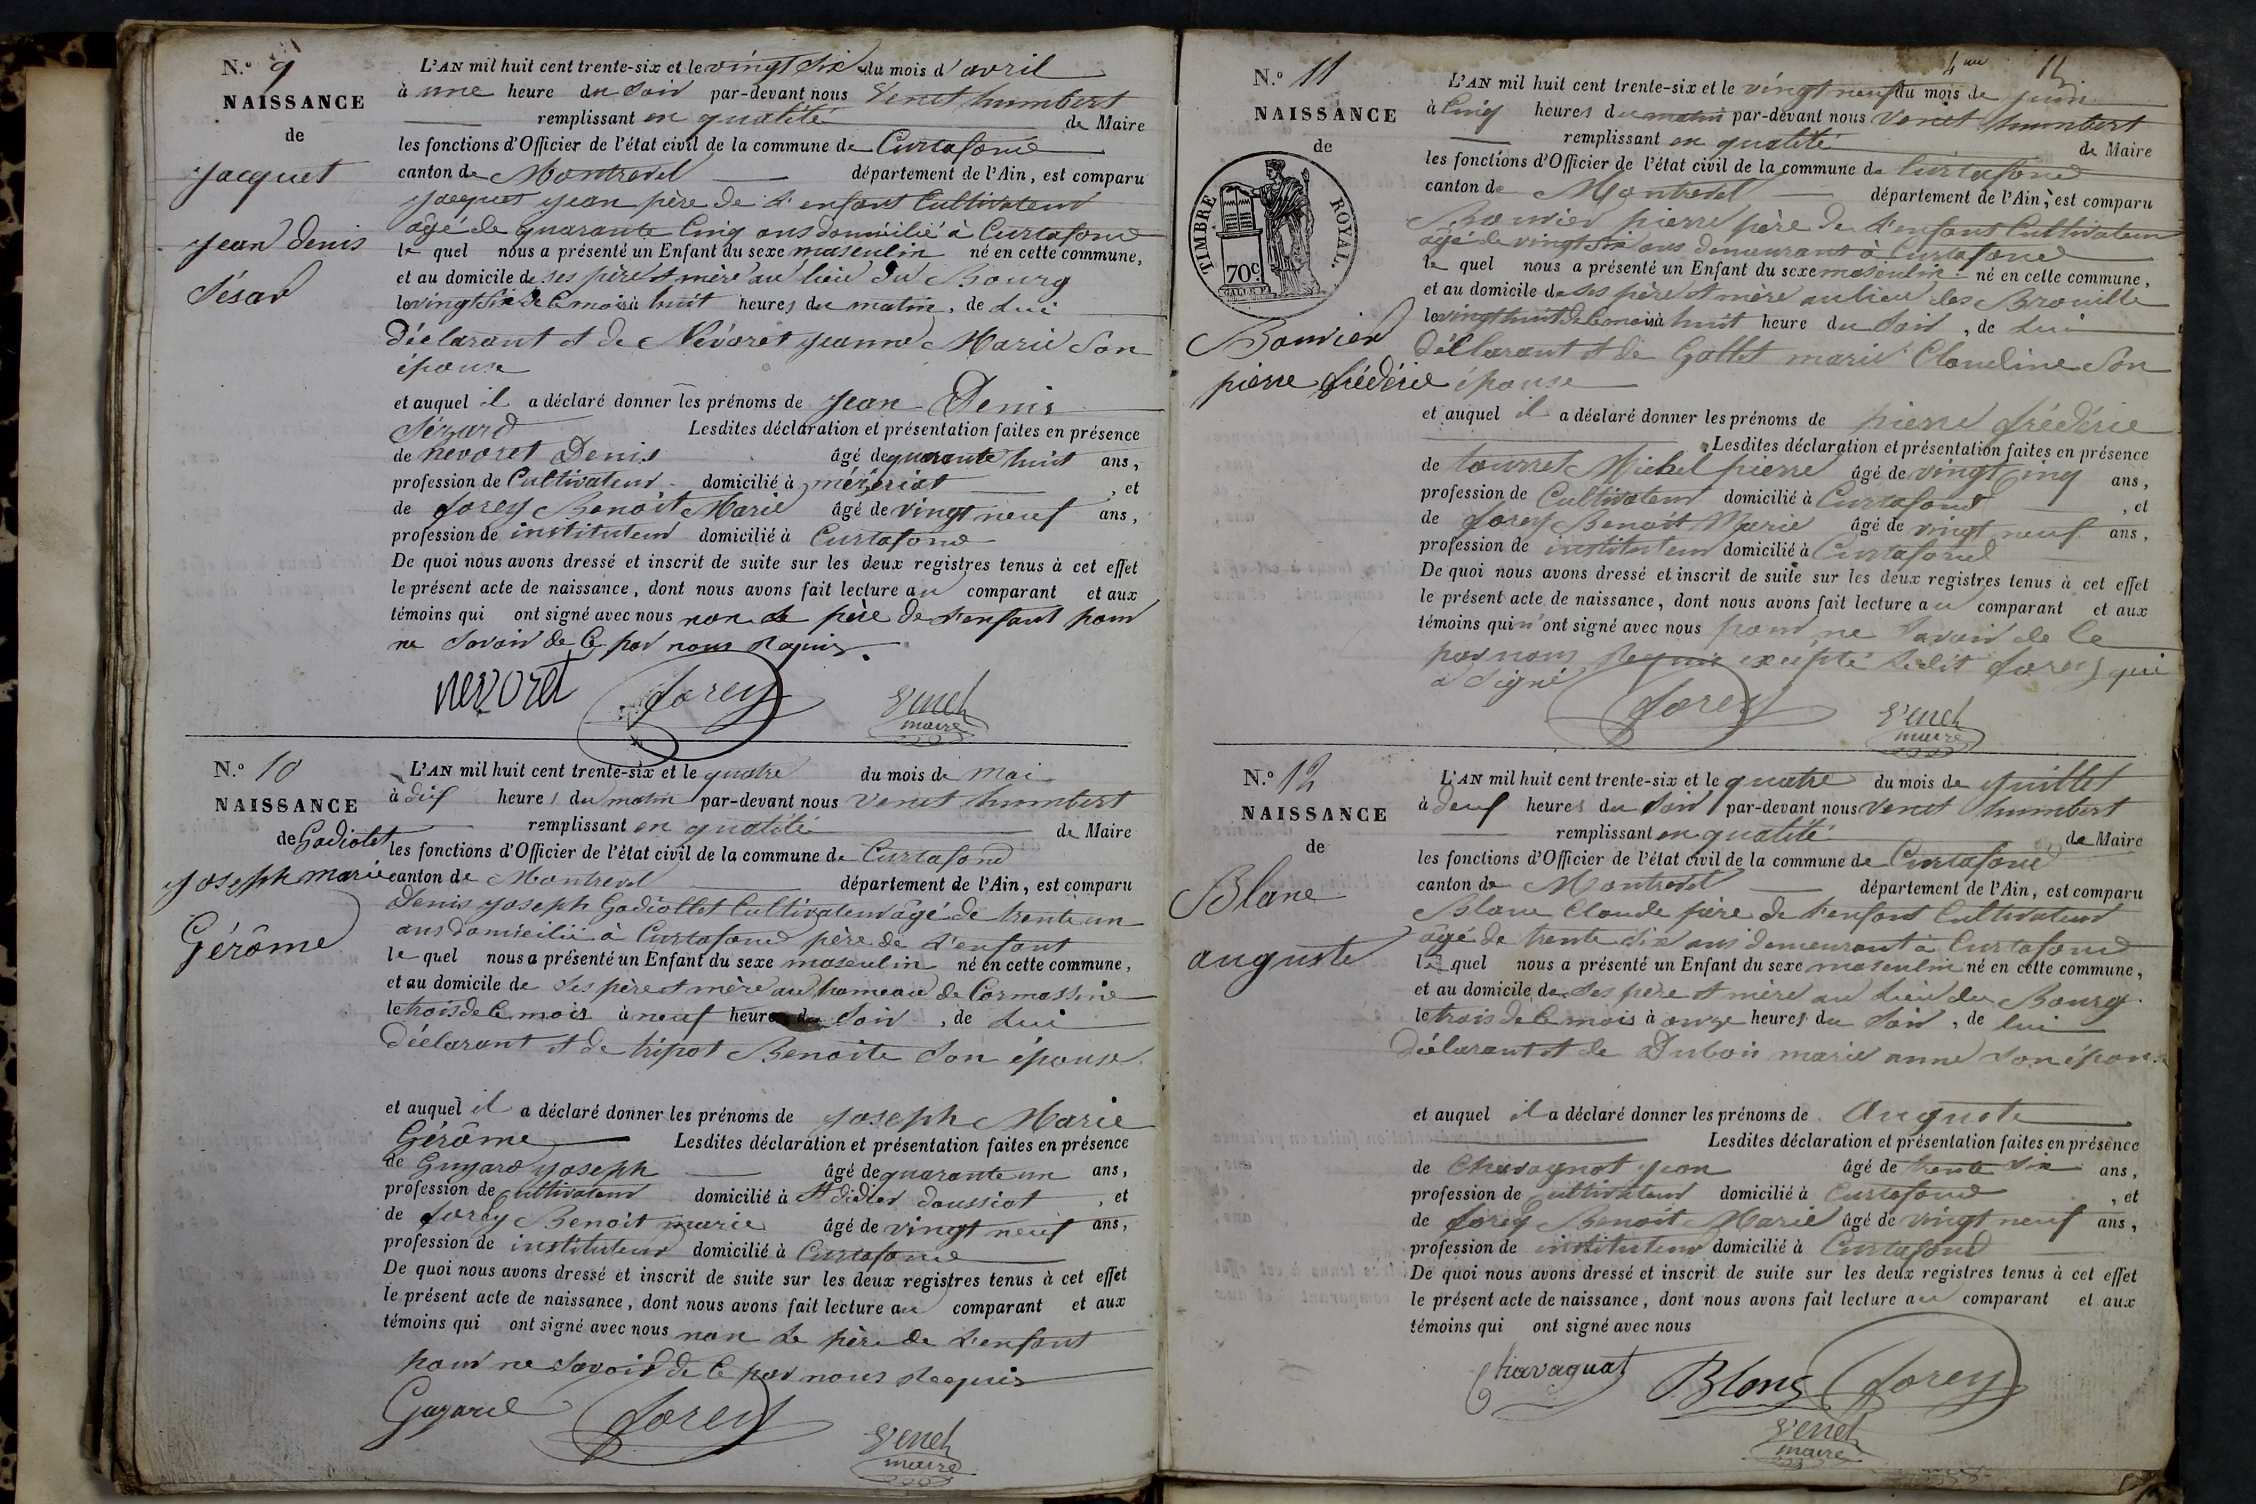 N.º 9
NAISSANCE
de
Jacquet
Jean denis
Sésar
L'AN mil huit cent trente-six et le vingt six du mois d'avril
à une heure du soir par-devant nous Venet humbert
remplissant en qualité de Maire
les fonctions d'Officier de l'état civil de la commune de Curtafond
canton de Montrevel département de l'Ain, est comparu
Jacquet jean père de l'enfant Cultivateur
âgé de quarante cinq ans domicilié à Curtafond
le quel nous a présenté un Enfant du sexe masculin né en cette commune,
et au domicile de ses père et mère au lieu du Bourg
le vingt six de ce mois à huit heures du matin, de lui
déclarant et de Névoret jeanne Marie son
épouse
et auquel il a déclaré donner les prénoms de jean Denis
Sézard Lesdites déclaration et présentation faites en présence
de nevoret Denis âgé de quarante huit ans,
profession de Cultivateur domicilié à mézériat, et
de Sorey Benoit Marie âgé de vingt neuf ans,
profession de instituteur domicilié à Curtafond
De quoi nous avons dressé et inscrit de suite sur les deux registres tenus à cet effet
le présent acte de naissance, dont nous avons fait lecture au comparant et aux
témoins qui ont signé avec nous non le père de l'enfant pour
ne savoir de ce par nous requis.
nevoret Sorey Venet
maire
N.º 10
NAISSANCE
de Gadiolet
joseph marie
Gérôme
L'AN mil huit cent trente-six et le quatre du mois de Mai
à dix heures du matin par-devant nous Venet humbert
remplissant en qualité de Maire
les fonctions d'Officier de l'état civil de la commune de Curtafond
canton de Montrevel département de l'Ain, est comparu
Denis joseph Gadiollet Cultivateur âgé de trente un
ans domicilié à Curtafond père de l'enfant
le quel nous a présenté un Enfant du sexe masculin né en cette commune,
et au domicile de ses père et mère au hameau de Cormassine
le trois de ce mois à neuf heures du soir, de lui
déclarant et de tripot Benoite son épouse
et auquel il a déclaré donner les prénoms de joseph Marie
Gérôme Lesdites déclaration et présentation faites en présence
de Guyard joseph âgé de quarante un ans,
profession de cultivateur domicilié à St didier doussiat, et
de Sorey Benoit marie âgé de vingt neuf ans,
profession de instituteur domicilié à Curtafond
De quoi nous avons dressé et inscrit de suite sur les deux registres tenus à cet effet
le présent acte de naissance, dont nous avons fait lecture au comparant et aux
témoins qui ont signé avec nous non le père de l'enfant
pour ne savoir de ce par nous requis
Guyard Sorey Venet
maire
4me
N.º 11
NAISSANCE
de
TIMBRE ROYAL.
70c
Bouvier
pierre frédéric
L'AN mil huit cent trente-six et le vingt neuf du mois de juin
à cinq heures du matin par-devant nous Venet humbert
remplissant en qualité de Maire
les fonctions d'Officier de l'état civil de la commune de Curtafond
canton de Montrevel département de l'Ain, est comparu
Bouvier pierre père de l'enfant Cultivateur
âgé de vingt six ans demeurant à Curtafond
le quel nous a présenté un Enfant du sexe masculin né en cette commune,
et au domicile de ses père et mère au lieu des Brouille
le vingt huit de ce mois à huit heure du soir, de lui
déclarant et de Gallet marie Claudine son
épouse
et auquel il a déclaré donner les prénoms de pierre frédéric
Lesdites déclaration et présentation faites en présence
de tourret Michel pierre âgé de vingt cinq ans,
profession de Cultivateur domicilié à Curtafond, et
de Sorey Benoit Marie âgé de vingt neuf ans,
profession de instituteur domicilié à Curtafond
De quoi nous avons dressé et inscrit de suite sur les deux registres tenus à cet effet
le présent acte de naissance, dont nous avons fait lecture au comparant et aux
témoins qui n'ont signé avec nous pour ne savoir de ce
par nous requis excépté ledit Sorey qui
a signé
Sorey Venet
maire
N.º 12
NAISSANCE
de
Blanc
auguste
L'AN mil huit cent trente-six et le quatre du mois de juillet
à deux heures du soir par-devant nous Venet humbert
remplissant en qualité de Maire
les fonctions d'Officier de l'état civil de la commune de Curtafond
canton de Montrevel département de l'Ain, est comparu
Blanc Claude père de l'enfant Cultivateur
âgé de trente six ans demeurant à Curtafond
le quel nous a présenté un Enfant du sexe masculin né en cette commune,
et au domicile de ses père et mère au lieu du Bourg
le trois de ce mois à onze heures du soir, de lui
déclarant et de Dubois marie anne son épouse
et auquel il a déclaré donner les prénoms de Auguste
Lesdites déclaration et présentation faites en présence
de Chavagnat jean âgé de trente six ans,
profession de cultivateur domicilié à Curtafond, et
de Sorey Benoit Marie âgé de vingt neuf ans,
profession de instituteur domicilié à Curtafond
De quoi nous avons dressé et inscrit de suite sur les deux registres tenus à cet effet
le présent acte de naissance, dont nous avons fait lecture au comparant et aux
témoins qui ont signé avec nous
Chavagnat Blanc Sorey
Venet
maire